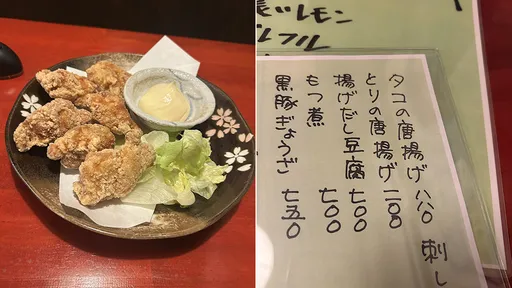 レモン
タコの唐揚げ 八八〇
とりの唐揚げ 二〇〇
揚げだし豆腐 七〇〇
もつ煮 七〇〇
黒豚ぎょうざ 七五〇
刺し